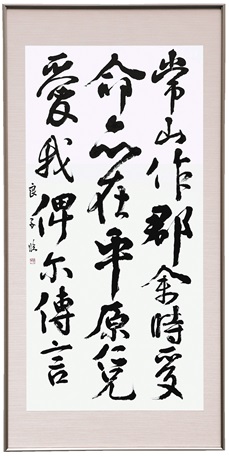 常山作郡余時受
命亦在平原仁兄
愛我俾尔傳言
良子